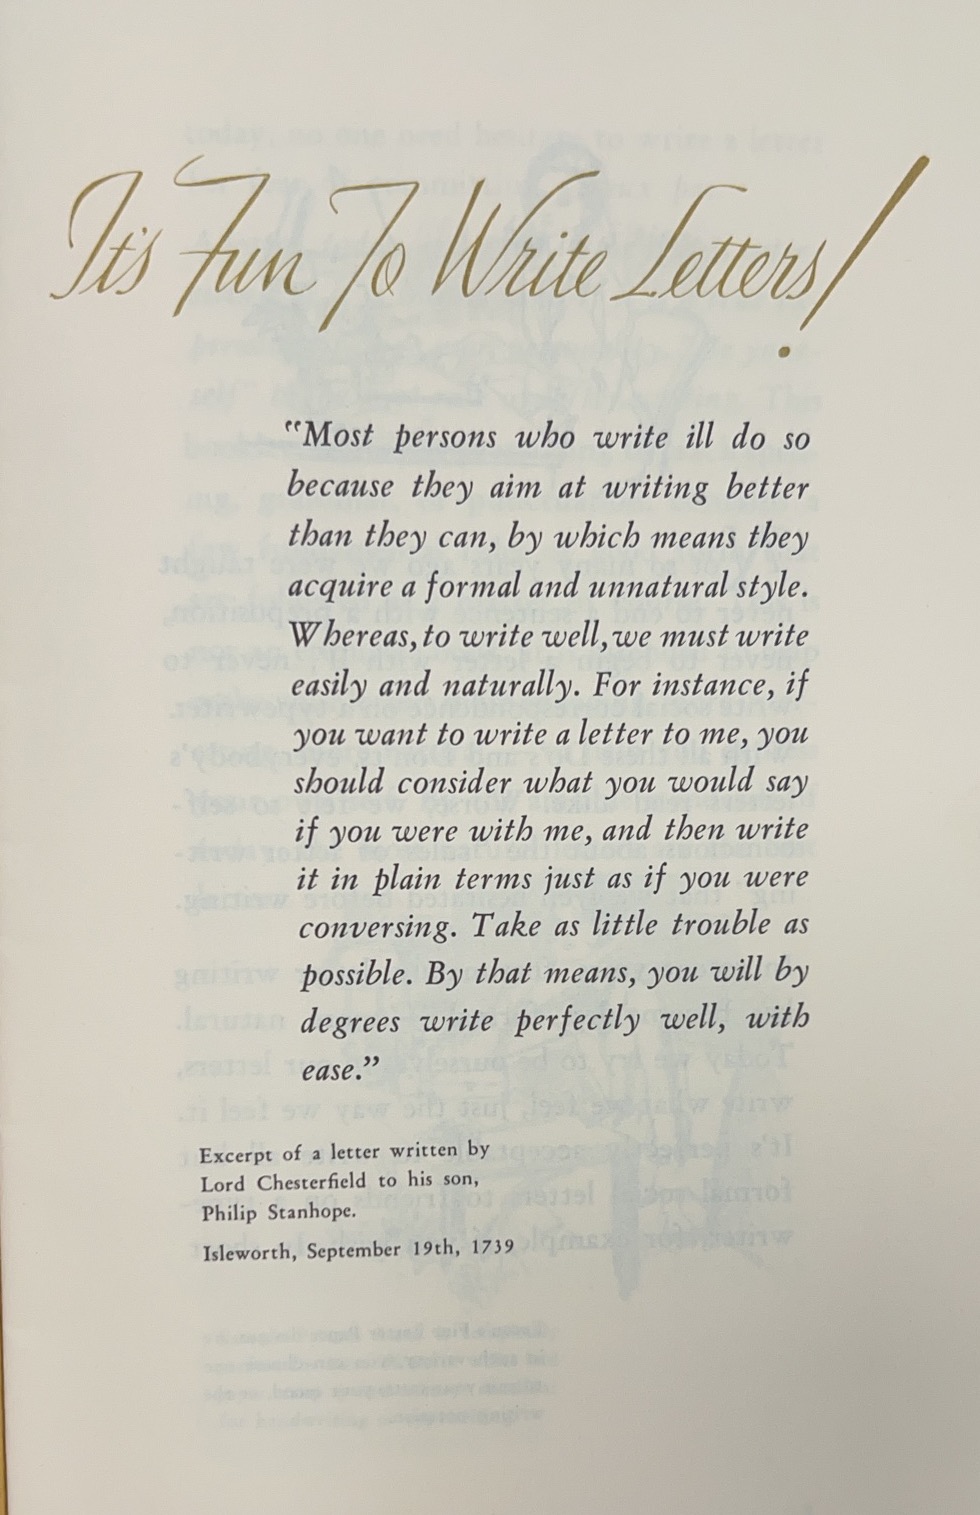 It's Fun To Write Letters!
“Most persons who write ill do so
because they aim at writing better
than they can, by which means they
acquire a formal and unnatural style.
Whereas, to write well, we must write
easily and naturally. For instance, if
you want to write a letter to me, you
should consider what you would say
if you were with me, and then write
it in plain terms just as if you were
conversing. Take as little trouble as
possible. By that means, you will by
degrees write perfectly well, with
ease.”
Excerpt of a letter written by
Lord Chesterfield to his son,
Philip Stanhope.
Isleworth, September 19th, 1739